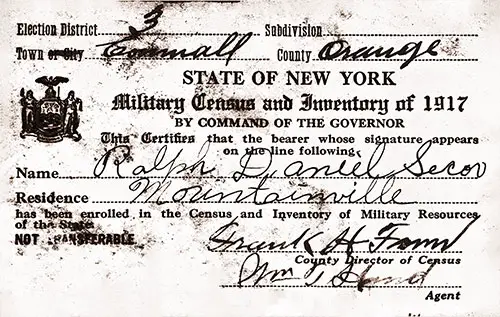 Election District 3 Subdivision
Town or City Cornwall County Orange
STATE OF NEW YORK
Military Census and Inventory of 1917
BY COMMAND OF THE GOVERNOR
This Certifies that the bearer whose signature appears
on the line following:
Name Ralph Daniel Secor
Residence Mountainville
has been enrolled in the Census and Inventory of Military Resources
of the State.
NOT TRANSFERABLE
Frank H
County Director of Census
Wm
Agent